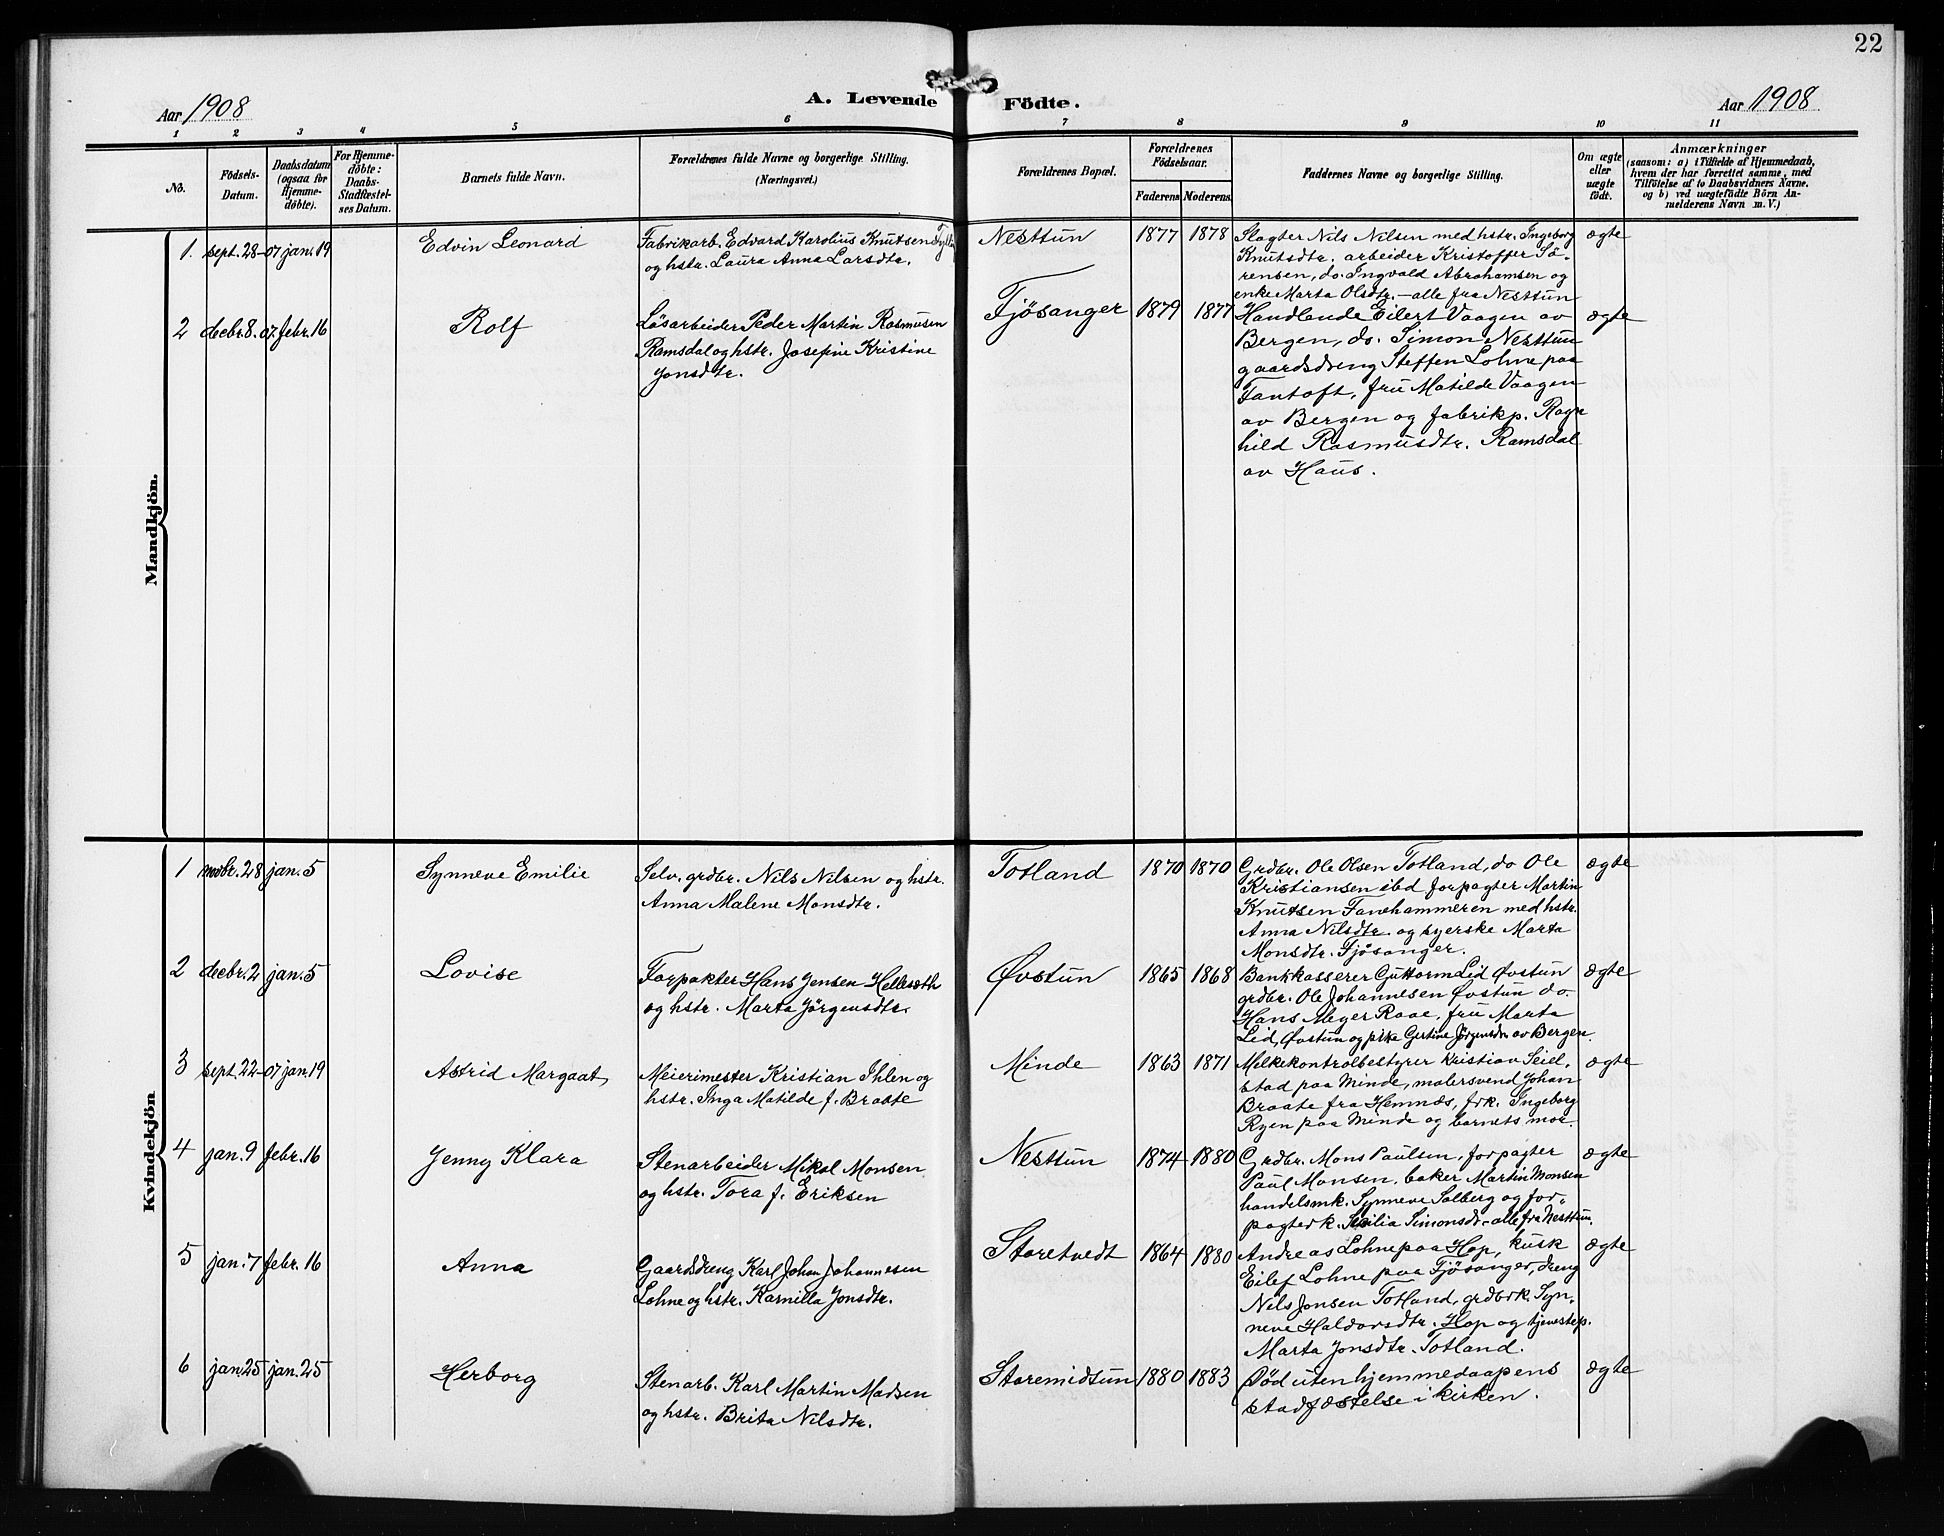 22
Aar 1908
A. Levende
Födte.
Aar 1908
1 2 3 4 5 6 7 8 9 10 11
No.
Födsels-
Datum.
Daabsdatum
(ogsaa for
Hjemme-
döbte).
For Hjemme-
döbte:
Daabs-
Stadfæstel-
ses Datum.
Barnets fulde Navn.
Forældrenes fulde Navne og borgerlige Stilling.
(Næringsvei.)
Forældrenes Bopæl.
Forældrenes
Födselsaar.
Faderens
Moderens
Faddernes Navne og borgerlige Stilling.
Om ægte
eller
uægte
födt.
Anmærkninger
(saasom: a) i Tilfælde af Hjemmedaab,
hvem der har forrettet samme, med
Tilföielse af to Daabsvidners Navne,
og b) ved uægtefödte Börn An-
melderens Navn m. V.)
Mandkjön.
1. sept. 28-07 jan. 19 Edvin Leonard
Fabrikarb. Edvard Karolius Knutsen
og hstr. Laura Anna Larsdtr.
Nesttun 1877 1878
Slagter Nils Nilsen med hstr. Ingeborg
Knutsdtr. arbeider Kristoffer Sö-
rensen, do. Ingvald Abrahamsen og
enke Marta Olsdtr. - alle fra Nesttun
ægte
2 decbr. 8. 07 febr. 16 Rolf
Løsarbeider Peder Martin Rasmusen
Ramsdal og hstr. Josefine Kristine
Jonsdtr.
Fjösanger 1879 1877
Handlende Eilert Vaagen av
Bergen, do. Simon Nesttun
gaardsdreng Steffen Lohne paa
Fantoft, fru Matilde Vaagen
av Bergen og fabrikp. Ragn
hild Rasmusdtr. Ramsdal
av Haus.
ægte
Kvindekjön
1 novbr. 28 jan. 5 Synneve Emilie
Selv. grdbr. Nils Nilsen og hstr.
Anna Malene Monsdtr.
Totland 1870 1870
Grdbr. Ole Olsen Totland, do Ole
Kristiansen ibd. forpagter Martin
Knutsen Fanehammeren med hstr.
Anna Nilsdtr. og syerske Marta
Monsdtr. Fjösanger.
ægte
2 decbr. 2 jan. 5 Lovise
Forpakter Hans Jensen Hellesøth
og hstr. Marta Jörgensdtr.
Øvstun 1865 1868
Bankkasserer Guttorm Lid Øvstun
grdbr. Ole Johannesen Øvstun do.
Hans Meyer Raae, fru Marta
Lid, Øvstun og pike Gertine Jörgensdtr av Bergen.
ægte
3 sept. 22-07 jan. 19 Astrid Margaat
Meierimester Kristian Ihlen og
hstr. Inga Matilde f. Braate
Minde 1863 1871
Melkekontrolbestyrer Kristian Seiel-
stad paa Minde, malersvend Johan
Braate fra Hemnæs, frk. Ingeborg
Ryen paa Minde og barnets mor.
ægte
4 jan. 9 febr. 16 Jenny Klara
Stenarbeider Mikal Monsen
og hstr. Tora f. Eriksen
Nesttun 1874 1880
Grdbr. Mons Paulsen, forpagter
Paul Monsen, baker Martin Monsen
handelsmk. Synneve Solberg og for-
pagterk. Sesilia Simonsdr. - alle fra Nesttun.
ægte
5 jan. 7 febr. 16 Anna
Gaardsdreng Karl Johan Johannesen
Lohne og hstr. Kamilla Jonsdtr.
Storetvedt 1864 1880
Andreas Lohne paa Hop, kusk
Eilef Lohne paa Fjösanger, dreng
Nils Jonsen Totland, grdbrk. Syn-
neve Haldorsdtr. Hop og tjenestep.
Marta Jonsdtr. Totland.
ægte
6 jan. 25 jan. 25 Herborg
Stenarb. Karl Martin Madsen
og hstr. Brita Nilsdtr.
Storemidtun 1880 1883
Död uten hjemmedaapens
stadfæstelse i kirken.
ægte